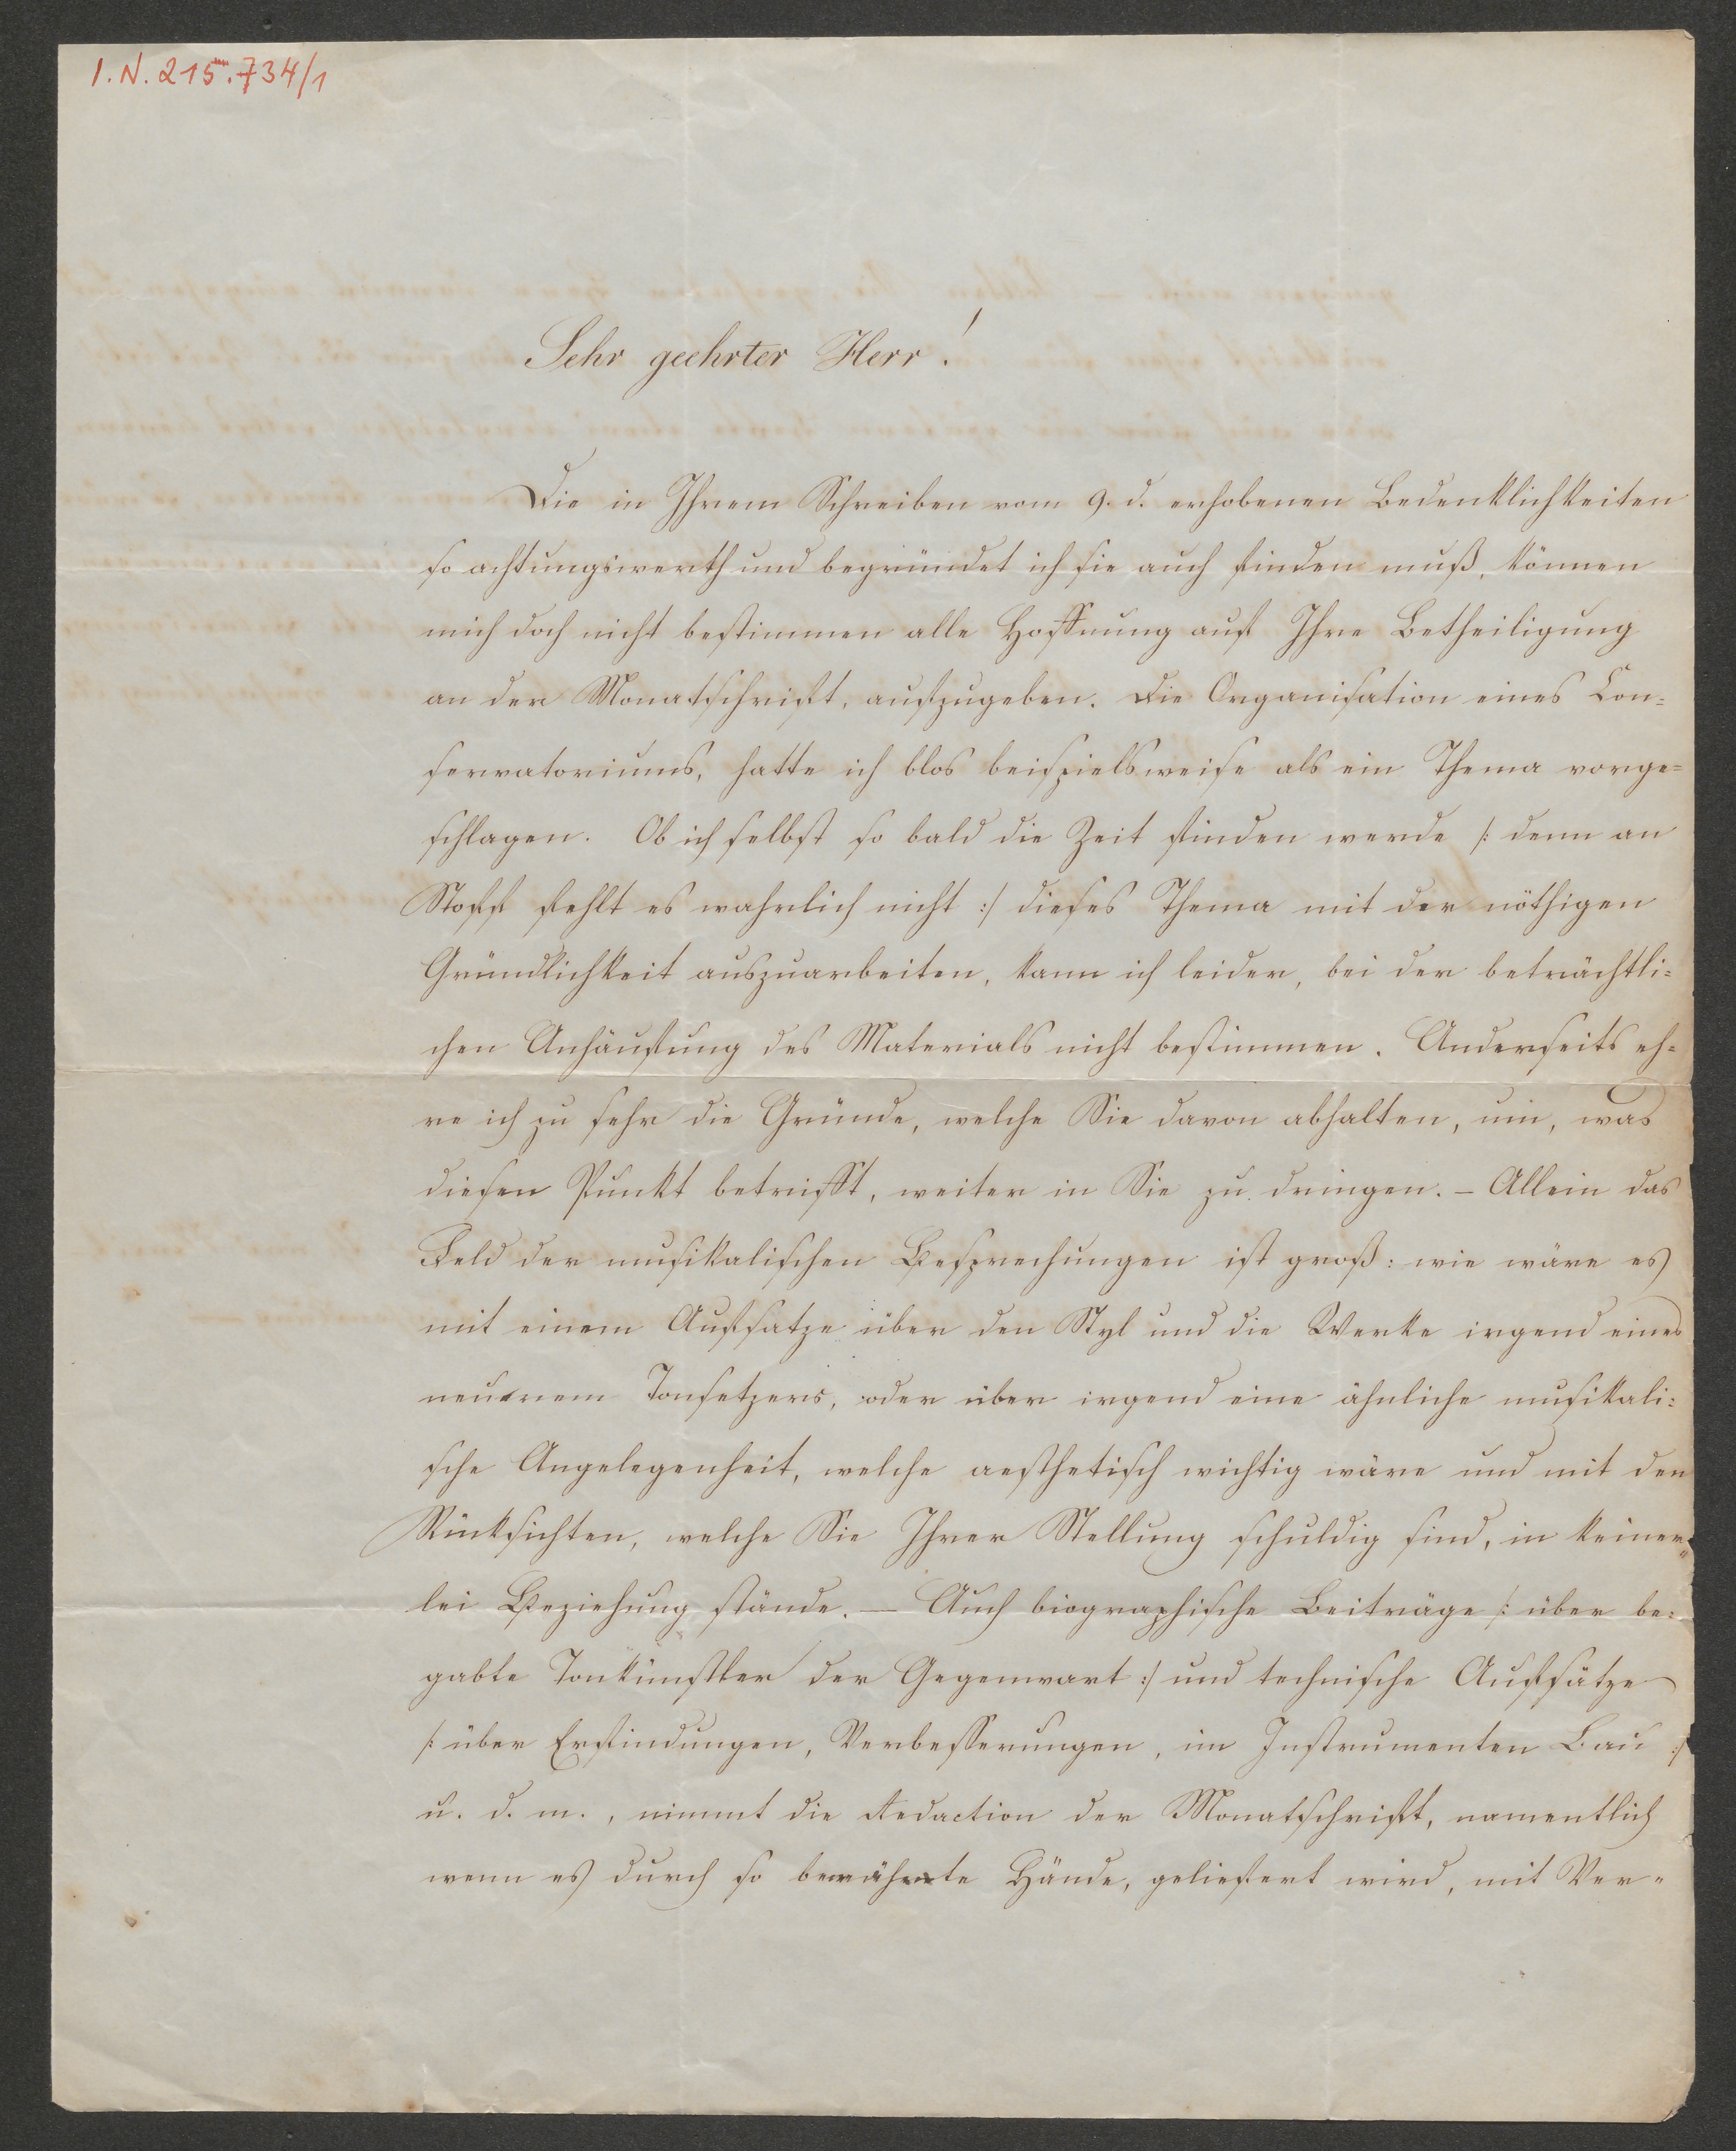 I. N. 215.734/1
Sehr geehrter Herr!
Die in Ihrem Schreiben vom 9. d. erhobenen Bedenklichkeiten
so achtungswerth und begründet ich sie auch finden muß, können
mich doch nicht bestimmen alle Hoffnung auf Ihre Betheiligung
an der Monatschrift, aufzugeben. Die Organisation eines Con-
servatoriums, hatte ich blos beispielsweise als ein Thema vorge-
schlagen. Ob ich selbst so bald die Zeit finden werde /: denn an
Stoff fehlt es wahrlich nicht :/ dieses Thema mit der nöthigen
Gründlichkeit auszuarbeiten, kann ich leider, bei der beträchtli-
chen Anhäufung des Materials nicht bestimmen. Anderseits eh-
re ich zu sehr die Gründe, welche Sie davon abhalten, um, was
diesen Punkt betrifft, weiter in Sie zu dringen. – Allein das
Feld der musikalischen Besprechungen ist groß: wie wäre es
mit einem Aufsatze über den Styl und die Werke irgend eines
neueren Tonsetzers, oder über irgend eine ähnliche musikali-
sche Angelegenheit, welche aesthetisch wichtig wäre und mit den
Rücksichten, welche Sie Ihrer Stellung schuldig sind, in keiner-
lei Beziehung stände. – Auch biographische Beiträge /: über be-
gabte Tonkünstler der Gegenwart :/ und technische Aufsätze
/: über Erfindungen, Verbesserungen, im Instrumenten Bau :/
u. d. m., nimmt die Redaction der Monatschrift, namentlich
wenn es durch so bewährte Hände, geliefert wird, mit Ver-